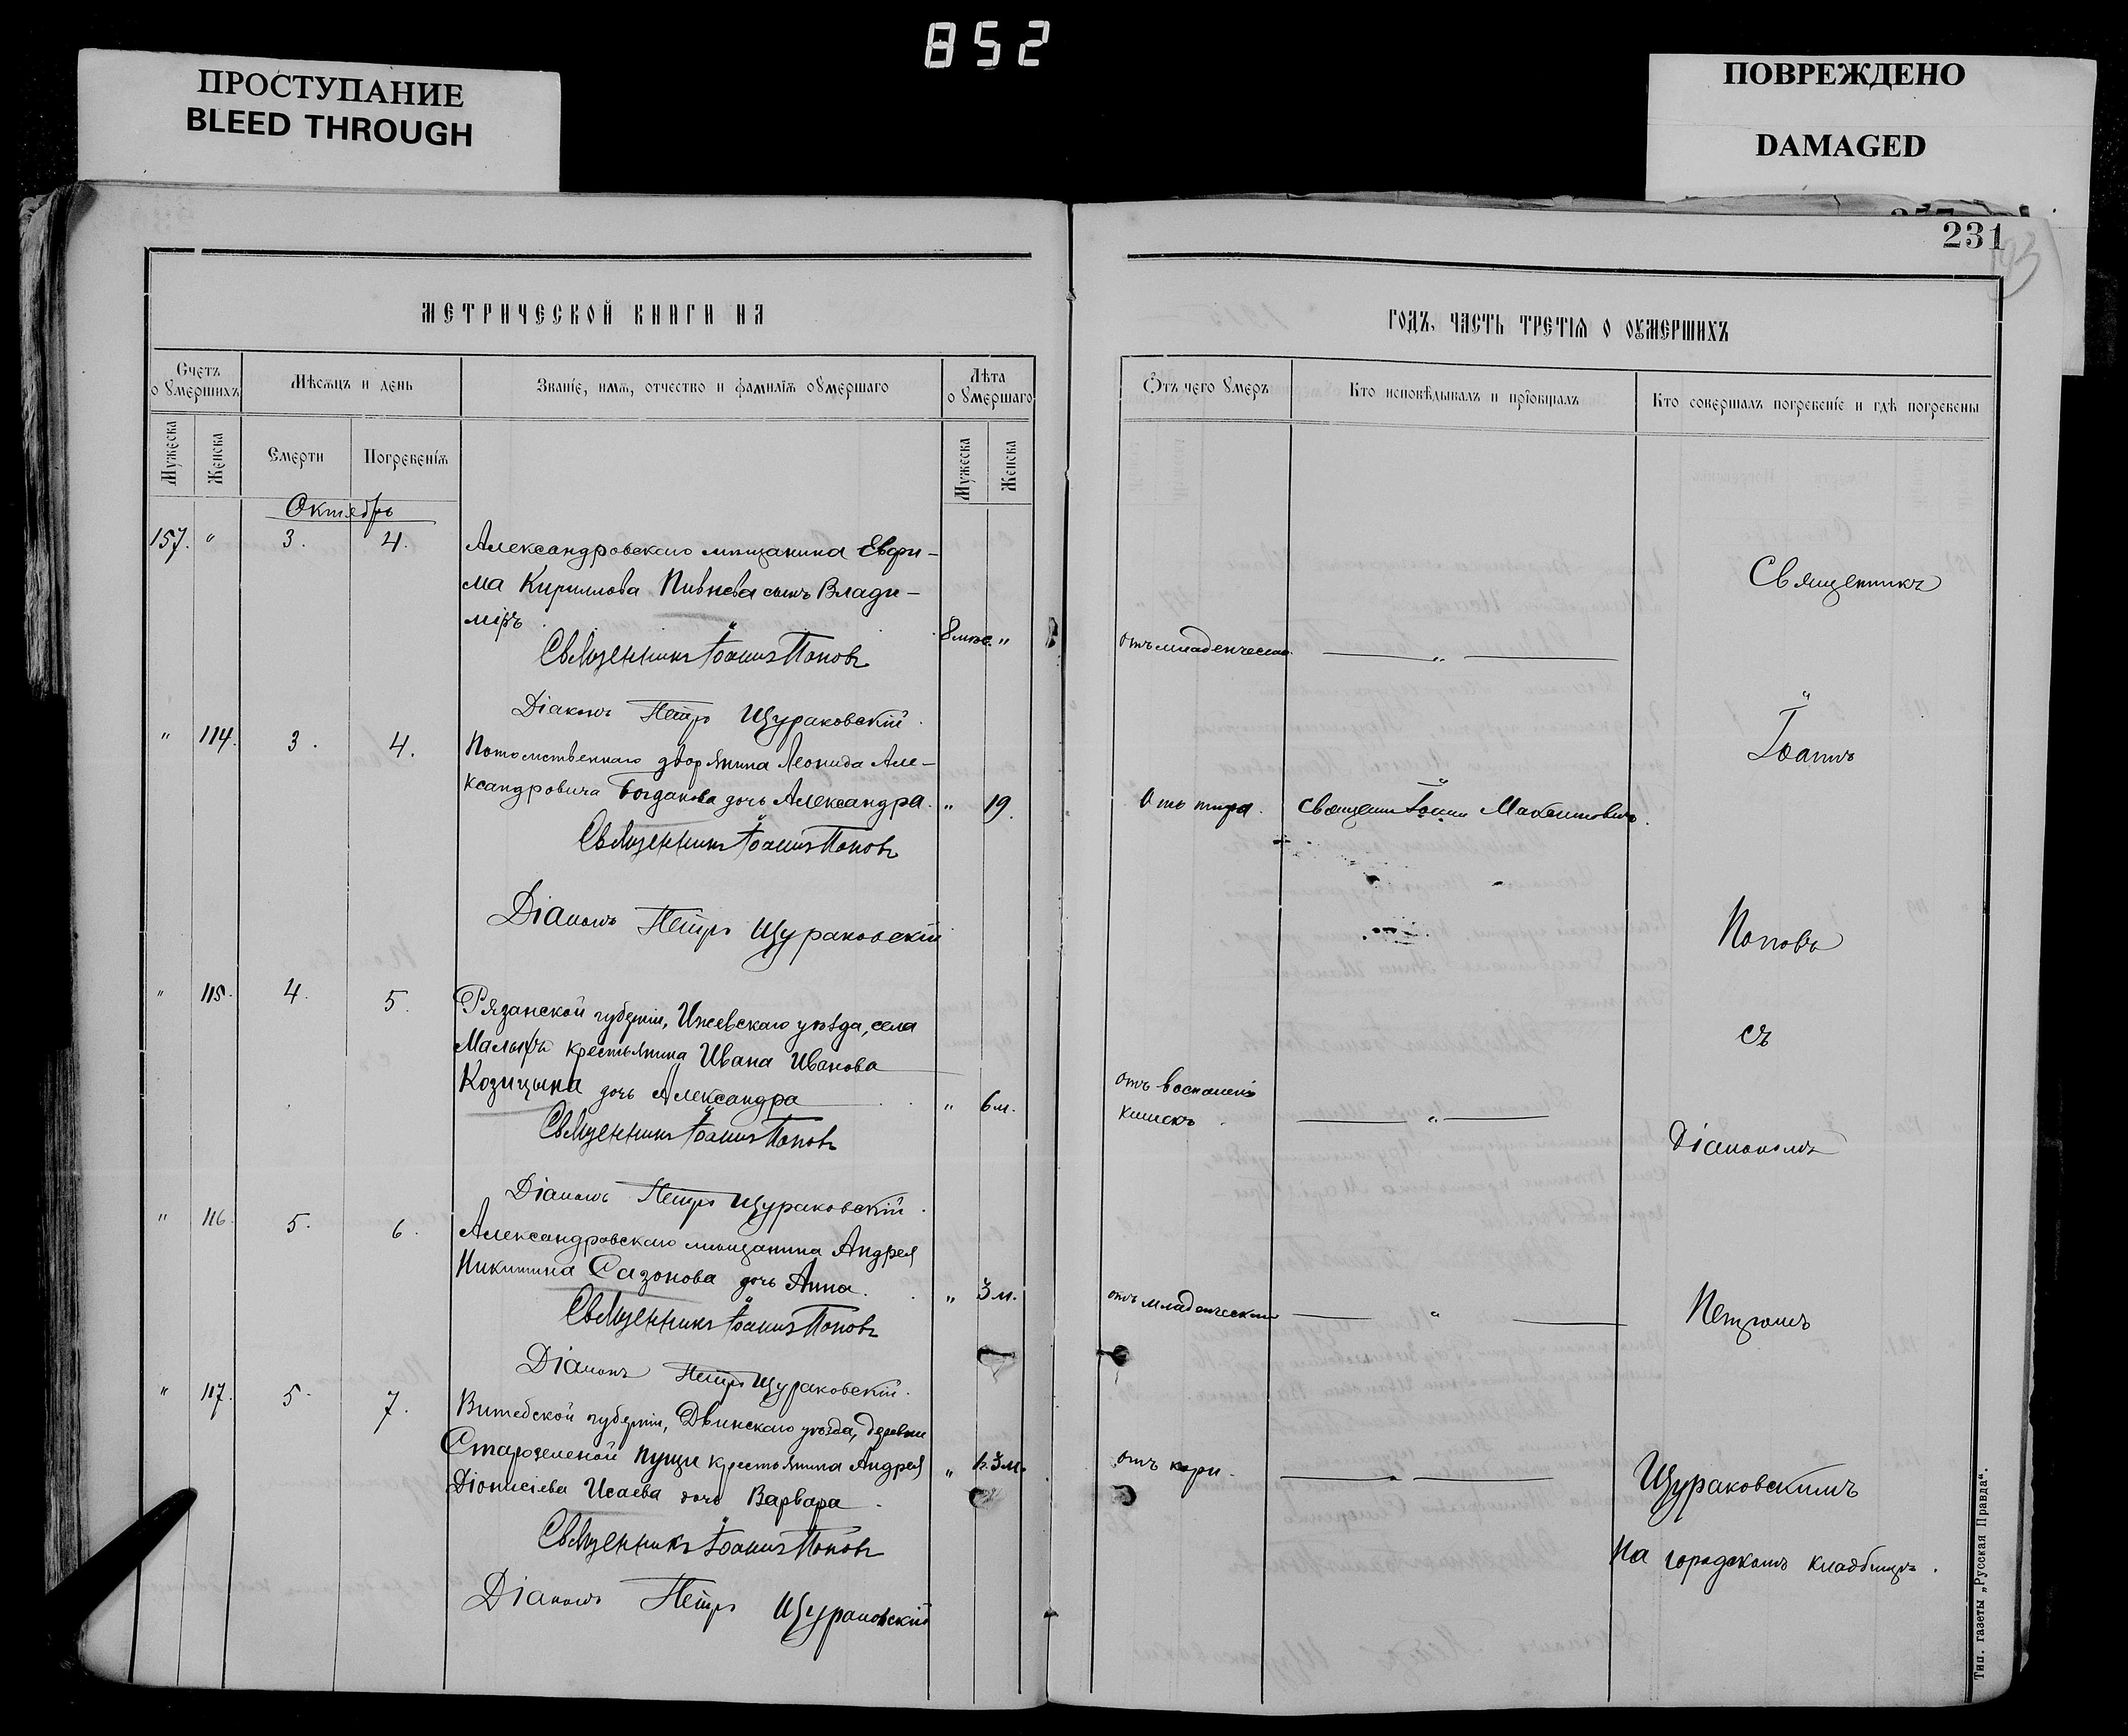 852
ПРОСТУПАНИЕ
BLEED THROUGH
ПОВРЕЖДЕНО
DAMAGED
231
МЕТРИЧЕСКОЙ КНИГИ НА
Счетъ о умершихъ
Мѣсяцъ и день
Званіе, имя, отчество и фамилія оумершаго
Лѣта оумершаго
Мужеска
Женска
Смерти
Погребенія
Мужеска
Женска
Октябрь
157. " 3. 4. Александровскаго мѣщанина Евфи-
ма Кириллова Пивнева сынъ Влади-
міръ. 8 мѣс. "
Священникъ Іоаннъ Поповъ
Діаконъ Петръ Щураковскій.
" 114. 3. 4. Потомственнаго дворянина Леонида Але-
ксандровича Богданова дочь Александра. " 19.
Священникъ Іоаннъ Поповъ
Діаконъ Петръ Щураковскій
" 115. 4. 5. Рязанской губерніи, уѣзда, села
крестьянина Ивана Иванова
Козицына дочь Александра " 6 м.
Священникъ Іоаннъ Поповъ
Діаконъ Петръ Щураковскій.
" 116. 5. 6. Александровскаго мѣщанина Андрея
Никитина Сазонова дочь Анна. " 3 м.
Священникъ Іоаннъ Поповъ
Діаконъ Петръ Щураковскій.
" 117. 5. 7. Витебской губерніи, Двинскаго уѣзда, деревни
пущи крестьянина Андрея " 3 м.
Діонисіева Исаева дочь Варвара.
Священникъ Іоаннъ Поповъ
Діаконъ Петръ Щураковскій
ГОДЪ, ЧАСТЬ ТРЕТІЯ О ОУМЕРШИХЪ
Отъ чего умеръ
Кто исповѣдывалъ и пріобщалъ
Кто совершалъ погребеніе и гдѣ погребены
отъ младенческой
"
Отъ тифа.
Іоаннъ Максимовичъ.
отъ воспаленія
кишекъ.
"
отъ младенческой
"
отъ кори.
"
Священникъ
Іоаннъ
Поповъ
съ
Діакономъ
Петромъ
Щураковскимъ
На городскомъ кладбищѣ.
Тип. газеты „Русская Правда“.